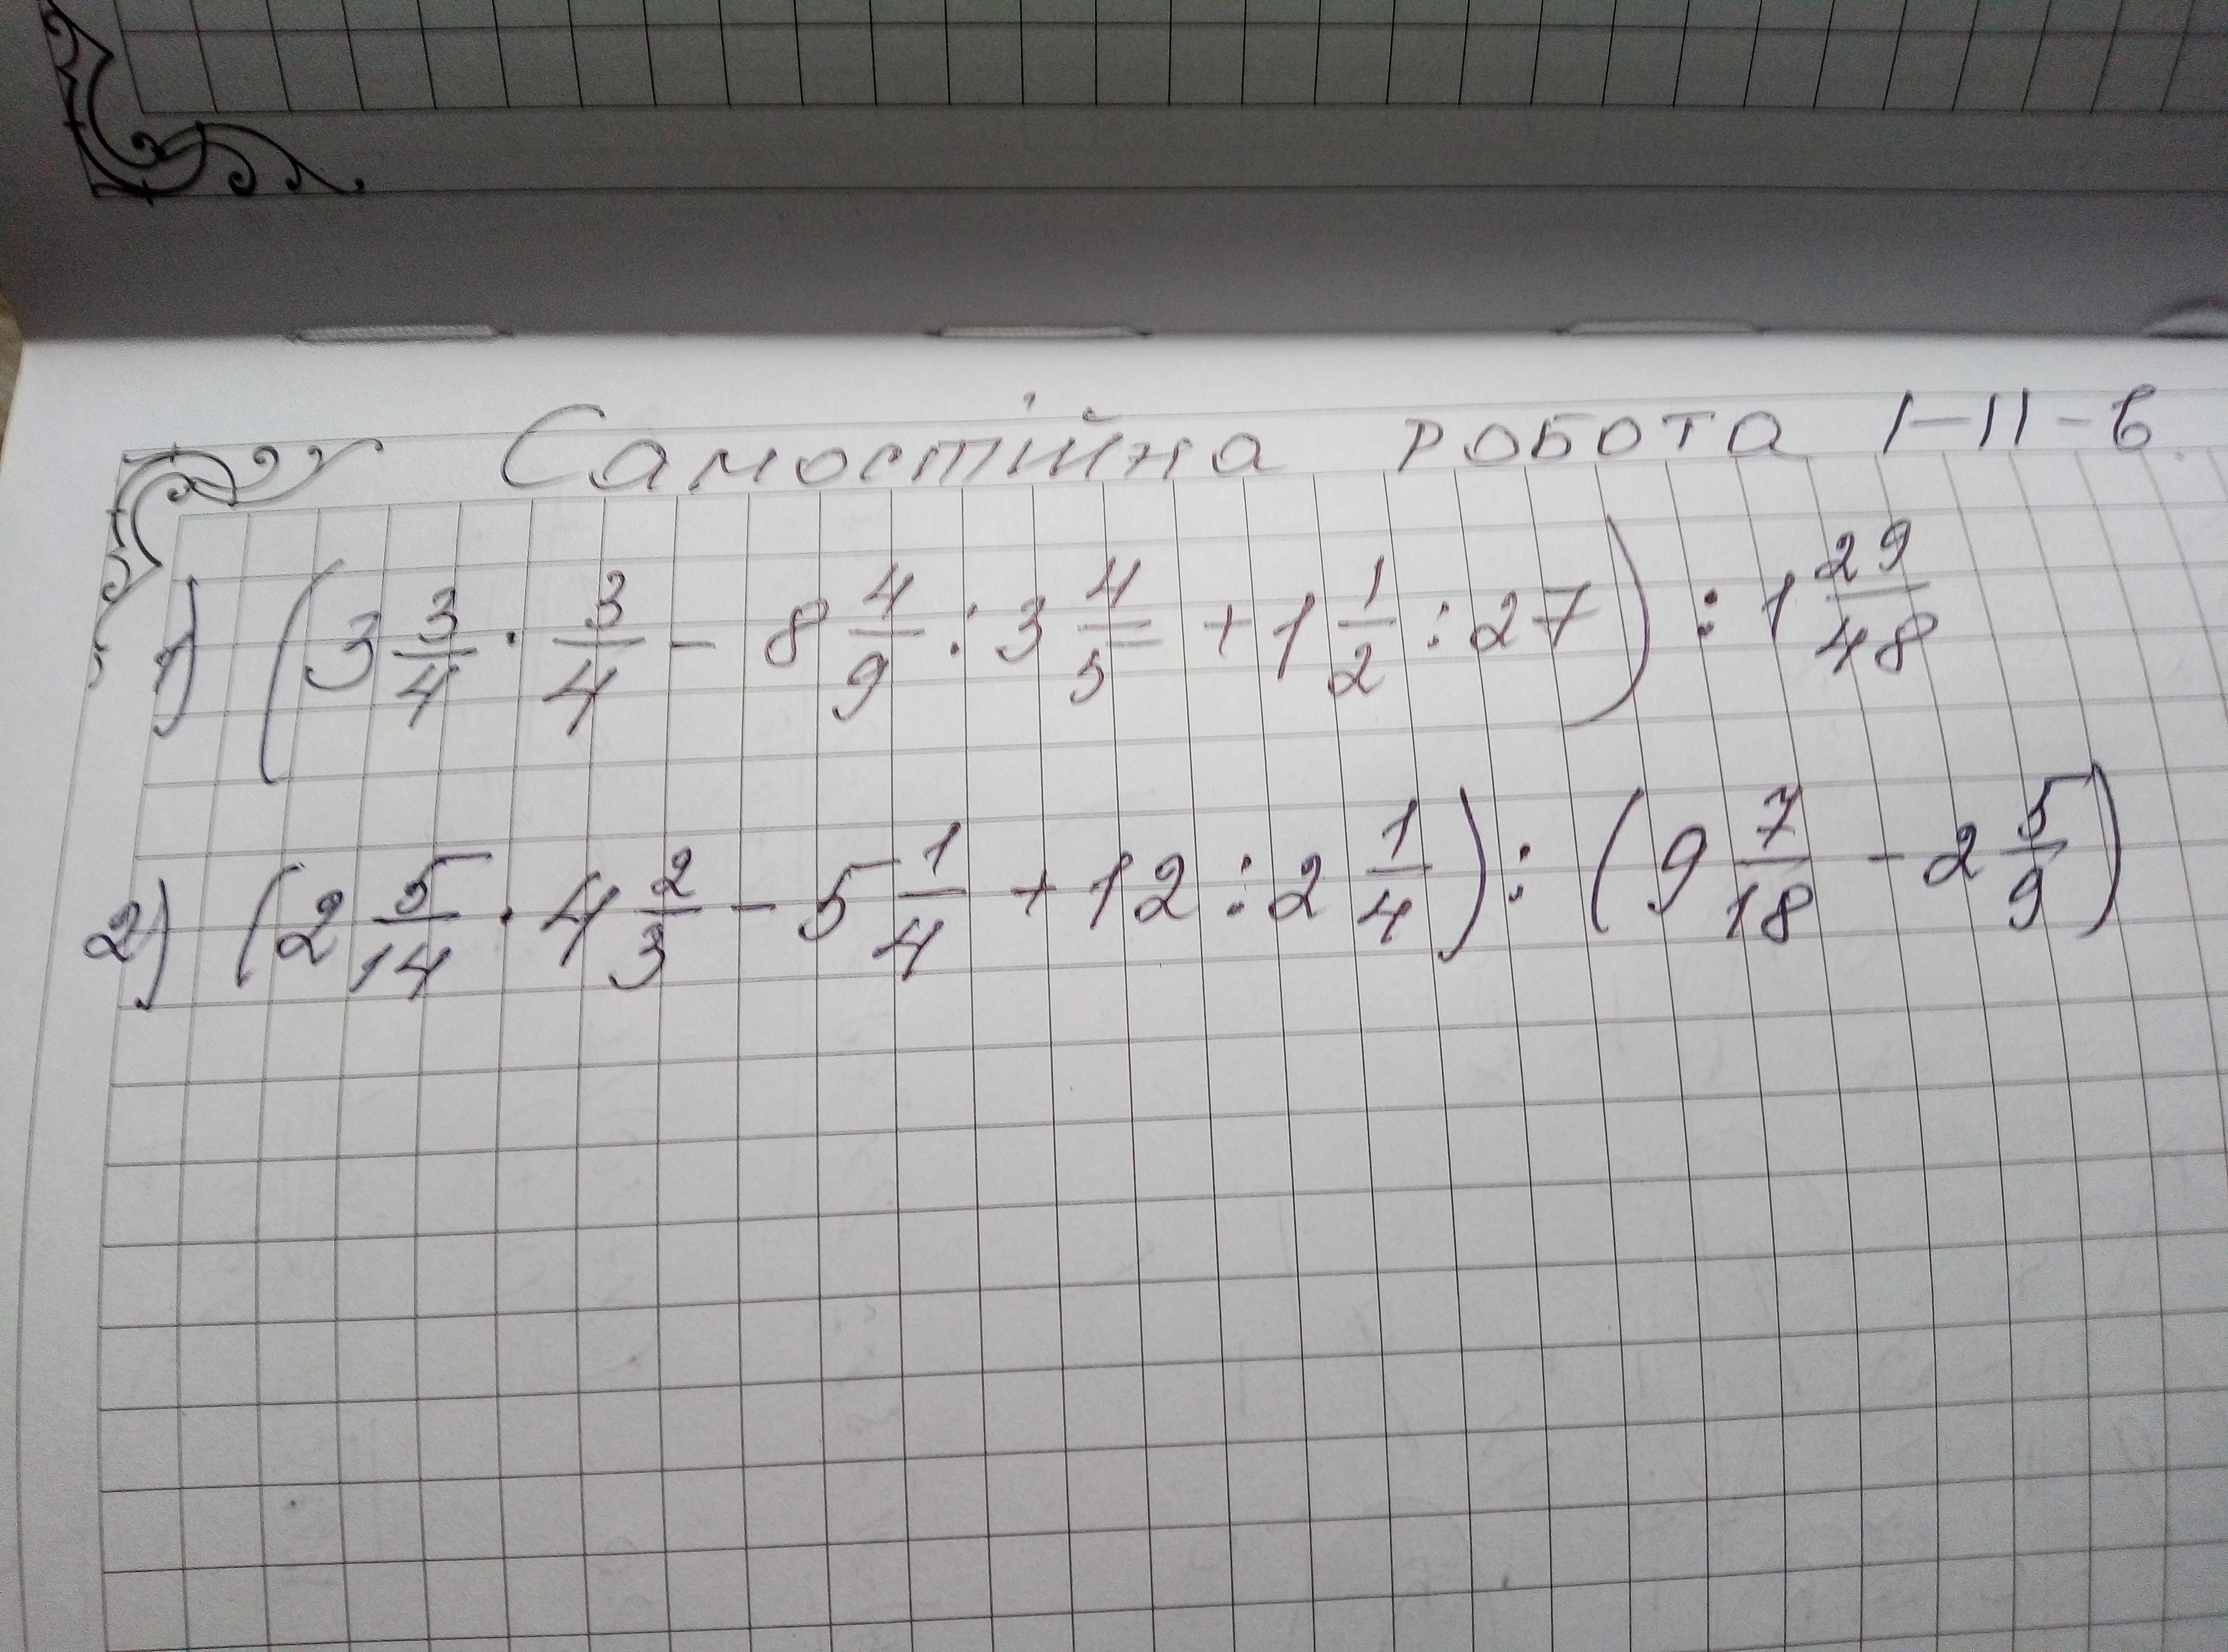 Самостійна робота 1-11-в
1) (3 3/4 · 3/4 - 8 4/9 : 3 4/5 + 1 1/2 : 27) : 1 29/48
2) (2 5/14 · 4 2/3 - 5 1/4 + 12 : 2 1/4) : (9 7/18 - 2 5/9)